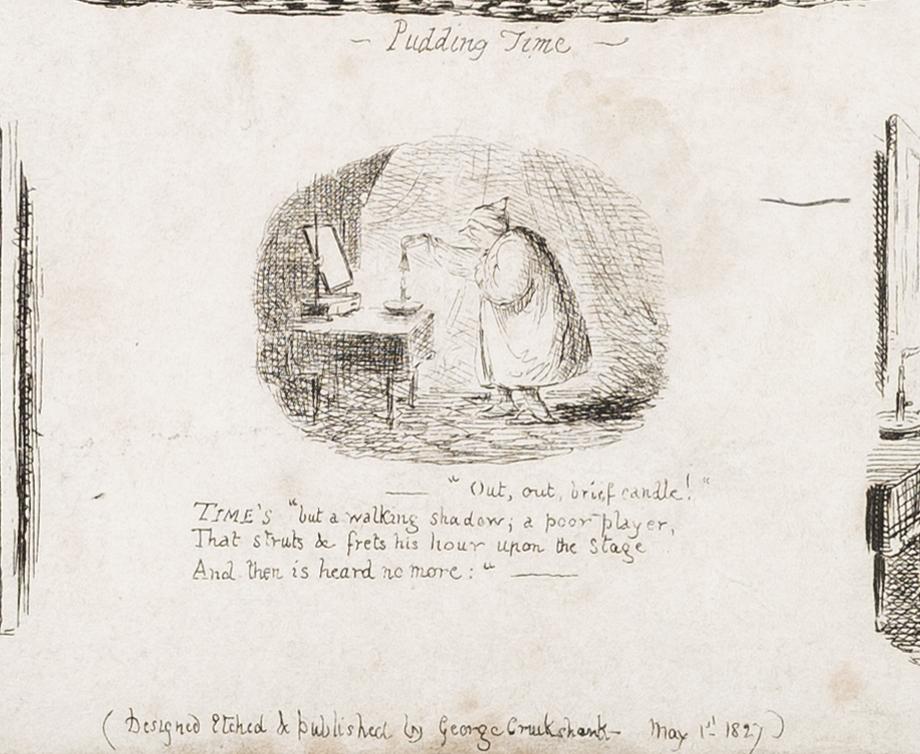 — Pudding Time —
— "Out, out, brief candle!"
TIME'S "but a walking shadow; a poor player,
That struts & frets his hour upon the Stage
And then is heard no more:" —
(Designed Etched & Published by George Cruikshank— May 1st 1827)